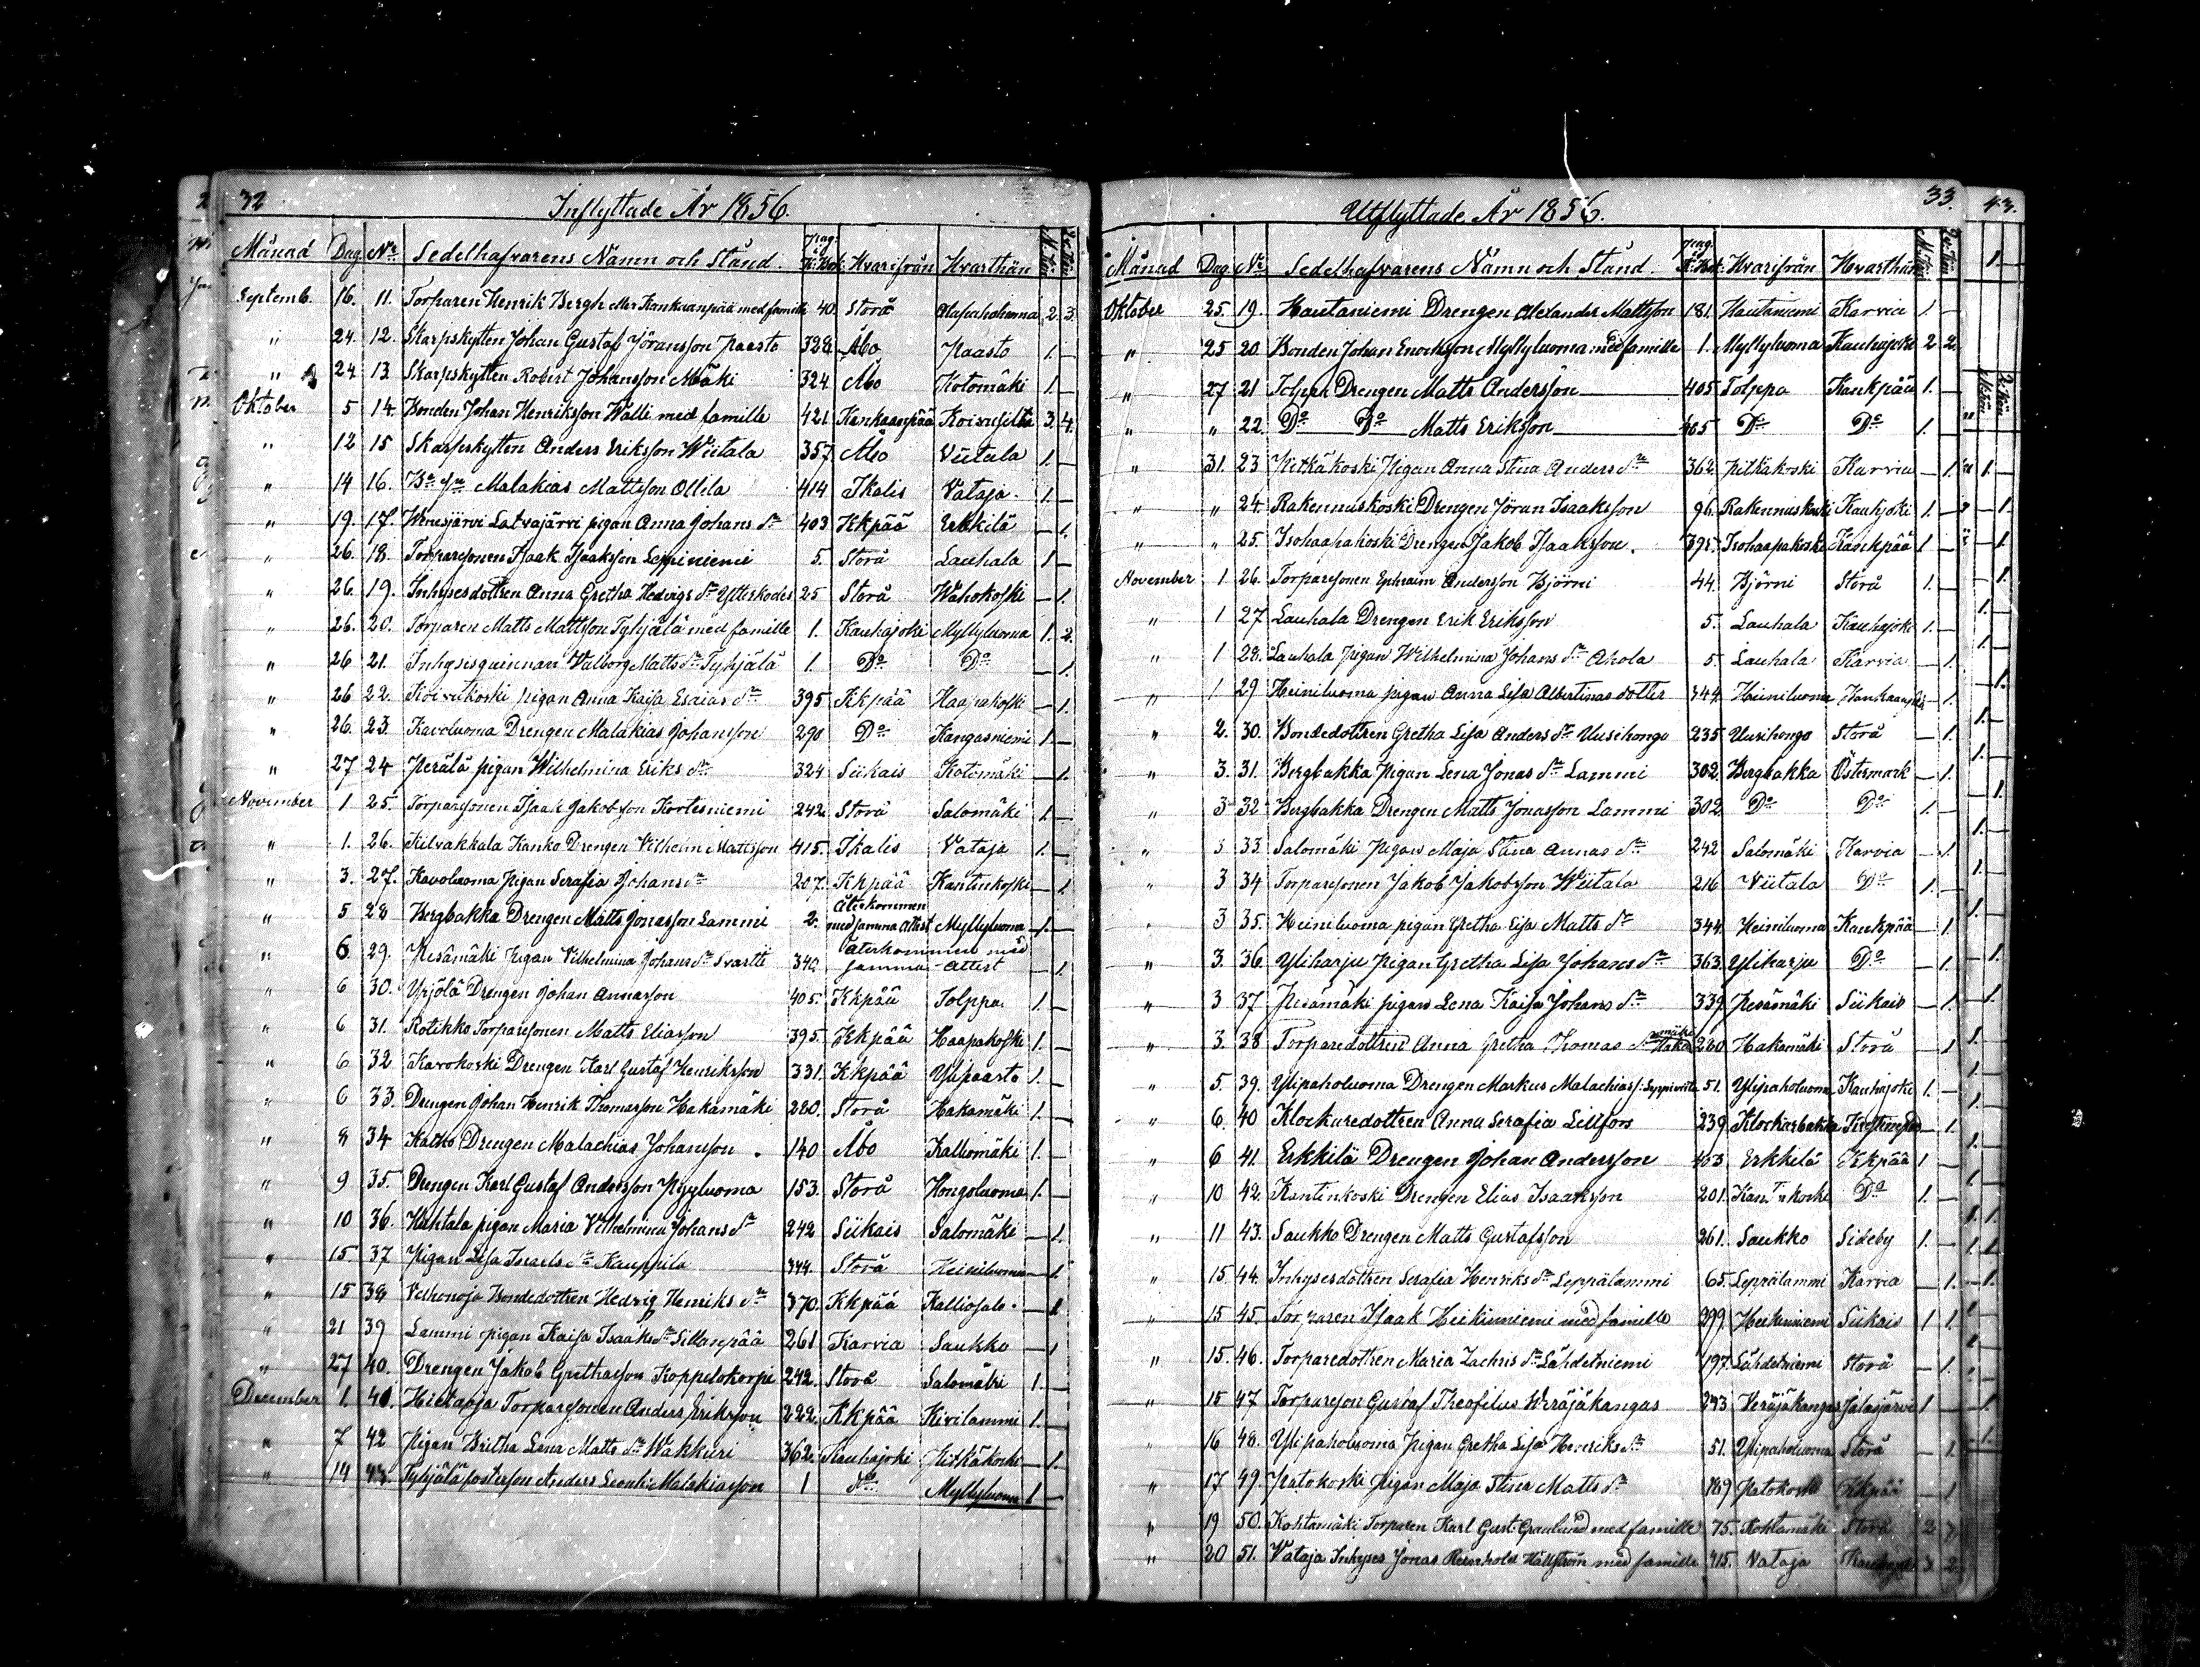 32
Inflyttade År 1856.
Månad Dag No. Sedelhafvarens Namn och Stånd. pag. i K. bok Hvarifrån Hvarthän M. kön Qv. kön
Septemb. 16. 11. Torparen Henrik Bergh eller Kankaanpää med famille 40. Storå Alapaholuoma 2. 3.
" 24. 12. Skarpskytten Johan Gustaf Jöransson Paasto 328. Åbo Paasto 1. —
" 24 13 Skarpskytten Robert Johansson Mäki 324 Åbo Kotomäki 1. —
Oktober 5 14 Bonden Johan Henriksson Wälli med famille 421 Kankaanpää Koivusilta 3. 4.
" 12 15 Skarpskytten Anders Eriksson Wiitala 357 Åbo Viitala 1. —
" 14 16. Malakias Mattsson Ollila 414 Ikalis Vataja 1. —
" 19. 17. Latvajärvi pigan Anna Johans dr 403 Kkpää Erkkilä — 1.
" 26. 18. Torparesonen Isaak Isaaksson Leppiniemi 5. Storå Lauhala 1 —
" 26 19. Inhysesdottren Anna Gretha Hedvigs dr 25 Storå Wahokoski — 1.
" 26. 20. Torparen Matts Mattsson Tyhjälä med famille 1. Kauhajoki Myllyluoma 1. 2.
" 26 21. Inhysisquinnan Valborg Matts dr Tyhjälä 1. Do Do — 1.
" 26 22. Koivukoski pigan Anna Kaisa Esaias dr 395 Kkpää Haapakoski — 1.
" 26. 23. Kavoluoma Drengen Malakias Johansson 290 Do Kangasniemi 1. —
" 27 24 Perälä pigan Wilhelmina Eriks dr 324 Siikais Kotomäki — 1.
November 1 25. Torparesonen Isaak Jakobsson Kortesniemi 242 Storå Salomäki 1. —
" 1. 26. Kilvakkala Kanko Drengen Vilhelm Mattsson 415. Ikalis Vataja 1. —
" 3. 27. Kavoluoma Pigan Serafia Johans dr 207. Kkpää Kantinkoski — 1.
" 5 28 Bergbakka Drengen Matts Jonasson Lammi 2. Återkommen med samma Attest Myllyluoma 1. —
" 6 29. Kesämäki Pigan Vilhelmina Johans dr Svartti 340 Återkommen med samma Attest — 1.
" 6 30. Yrjölä Drengen Johan Annasson 405. Kkpää Tolppa. 1. —
" 6 31. Rotikko Torparesonen Matts Eliasson 395. Kkpää Haapakoski 1. —
" 6 32. Karvokoski Drengen Karl Gustaf Henriksson 331. Kkpää Ylipaasto 1. —
" 6 33. Drengen Johan Henrik Thomasson Hakamäki 280. Storå Hakamäki 1. —
" 8 34 Katko Drengen Malachias Johansson 140 Åbo Kalliomäki 1. —
" 9 35. Drengen Karl Gustaf Andersson Pyyluoma 153. Storå Hongoluoma 1. —
" 10 36. Huhtala pigan Maria Vilhelmina Johans dr 242 Siikais Salomäki — 1.
" 15 37 Pigan Lisa Israels dr Kauppila 344. Storå Heiniluoma — 1.
" 15 38 Bondedottren Hedvig Henriks dr 370. Kkpää Kalliosalo — 1.
" 21 39 Lammi pigan Kaisa Isaaks dr Sillanpää 261 Karvia Saukko — 1
" 27 40. Drengen Jakob Grethasson Koppelokorpi 242. Storå Salomäki 1. —
December 1. 41. Hietaoja Torparesonen Anders Eriksson 222. Kkpää Kivilammi 1. —
" 7 42 Pigan Britha Lena Matts dr Wakkuri 362. Kauhajoki Pitkäkoski — 1.
" 14 43. Tyhjälä fosterson Anders Leonti Malakiasson 1 Do Myllyluoma 1 —
33.
Utflyttade År 1856.
Månad Dag No. Sedelhafvarens Namn och Stånd. pag. K. bok. Hvarifrån Hvarthän M. kön Qv. kön
Oktober 25. 19. Hautaniemi Drengen Alexander Mattsson 181. Hautaniemi Karvia 1. —
" 25 20. Bonden Johan Enocksson Myllyluoma med famille 1. Myllyluoma Kauhajoki 2 2.
" 27 21 Tolppa Drengen Matts Andersson 405 Tolppa Kankpää 1. —
" " 22. Do Do Matts Eriksson 405 Do Do 1. —
" 31. 23 Pitkäkoski Pigan Anna Stina Anders dr 362. Pitkäkoski Karvia — 1.
" " 24 Rakennuskoski Drengen Jöran Isaaksson 96. Rakennuskoski Kauhjoki 1. —
" " 25. Isohaapakoski Drengen Jakob Isaaksson. 395. Isohaapakoski Kankpää 1 —
November 1 26. Torparesonen Ephraim Andersson Björni 44. Björni Storå 1. —
" 1 27 Lauhala Drengen Erik Eriksson 5. Lauhala Kauhajoki 1. —
" 1 28. Lauhala Pigan Wilhelmina Johans dr Ahola 5. Lauhala Karvia — 1.
" 1 29 Heiniluoma pigan Anna Lisa Albertinas dotter 344. Heiniluoma Kankaanpää — 1.
" 2. 30. Bondedottren Gretha Lisa Anders dr Uusihongo 235 Uusihongo Storå — 1.
" 3. 31. Bergbakka Pigan Lena Jonas dr Lammi 302. Bergbakka Östermark — 1.
" 3 32 Bergbakka Drengen Matts Jonasson Lammi 302. Do Do 1. —
" 3 33. Salomäki Pigan Maja Stina Annas dr 242 Salomäki Karvia — 1.
" 3 34 Torparesonen Jakob Jakobsson Wiitala 216 Viitala Do 1. —
" 3 35. Heiniluoma pigan Gretha Lisa Matts dr 344. Heiniluoma Kankpää — 1.
" 3. 36 Yliharju Pigan Gretha Lisa Johans dr 363. Ylikarju Do — 1.
" 3 37 Kesämäki pigan Lena Kaisa Johans dr 339. Kesämäki Siikais — 1.
" 3. 38 Torparedottren Anna Gretha Thomas dr Hakamäki 280 Hakamäki Storå — 1
" 5. 39. Ylipaholuoma Drengen Markus Malachiass. 51. Ylipaholuoma Kauhajoki 1. —
" 6. 40 Klockaredottren Anna Serafia Lillfors 239. Klockarbakka — 1.
" 6 41. Erkkilä Drengen Johan Andersson 403 Erkkilä Kkpää 1 —
" 10 42. Kantinkoski Drengen Elias Isaaksson 201. Kantinkoski Do 1. —
" 11 43. Saukko Drengen Matts Gustafsson 261. Saukko Sideby 1. —
" 15. 44. Inhysesdottren Serafia Henriks dr Leppälammi 65. Leppälammi Karvia — 1.
" 15 45. Torparen Isaak Heikinniemi med famille 299. Heikinniemi Siikais 1 1.
" 15. 46. Torparedottren Maria Zachris dr Lähdetniemi 197. Lähdetniemi Storå — 1.
" 15 47 Torpareson Gustaf Theofilus Weräjäkangas 293 Veräjäkangas Jalasjärvi 1 —
" 16 48. Ylipaholuoma Pigan Gretha Lisa Henriks dr 51. Ylipaholuoma Storå — 1.
" 17 49. Patokoski Pigan Maja Stina Matts dr 169 Patokoski Kkpää — 1
" 19 50. Kohtamäki Torparen Karl Gust. Granlund med famille 75. Kohtamäki Storå 2
" 20 51. Vataja Inhyses Jonas Reinhold Hällström med famille 415. Vataja 3 2
43.